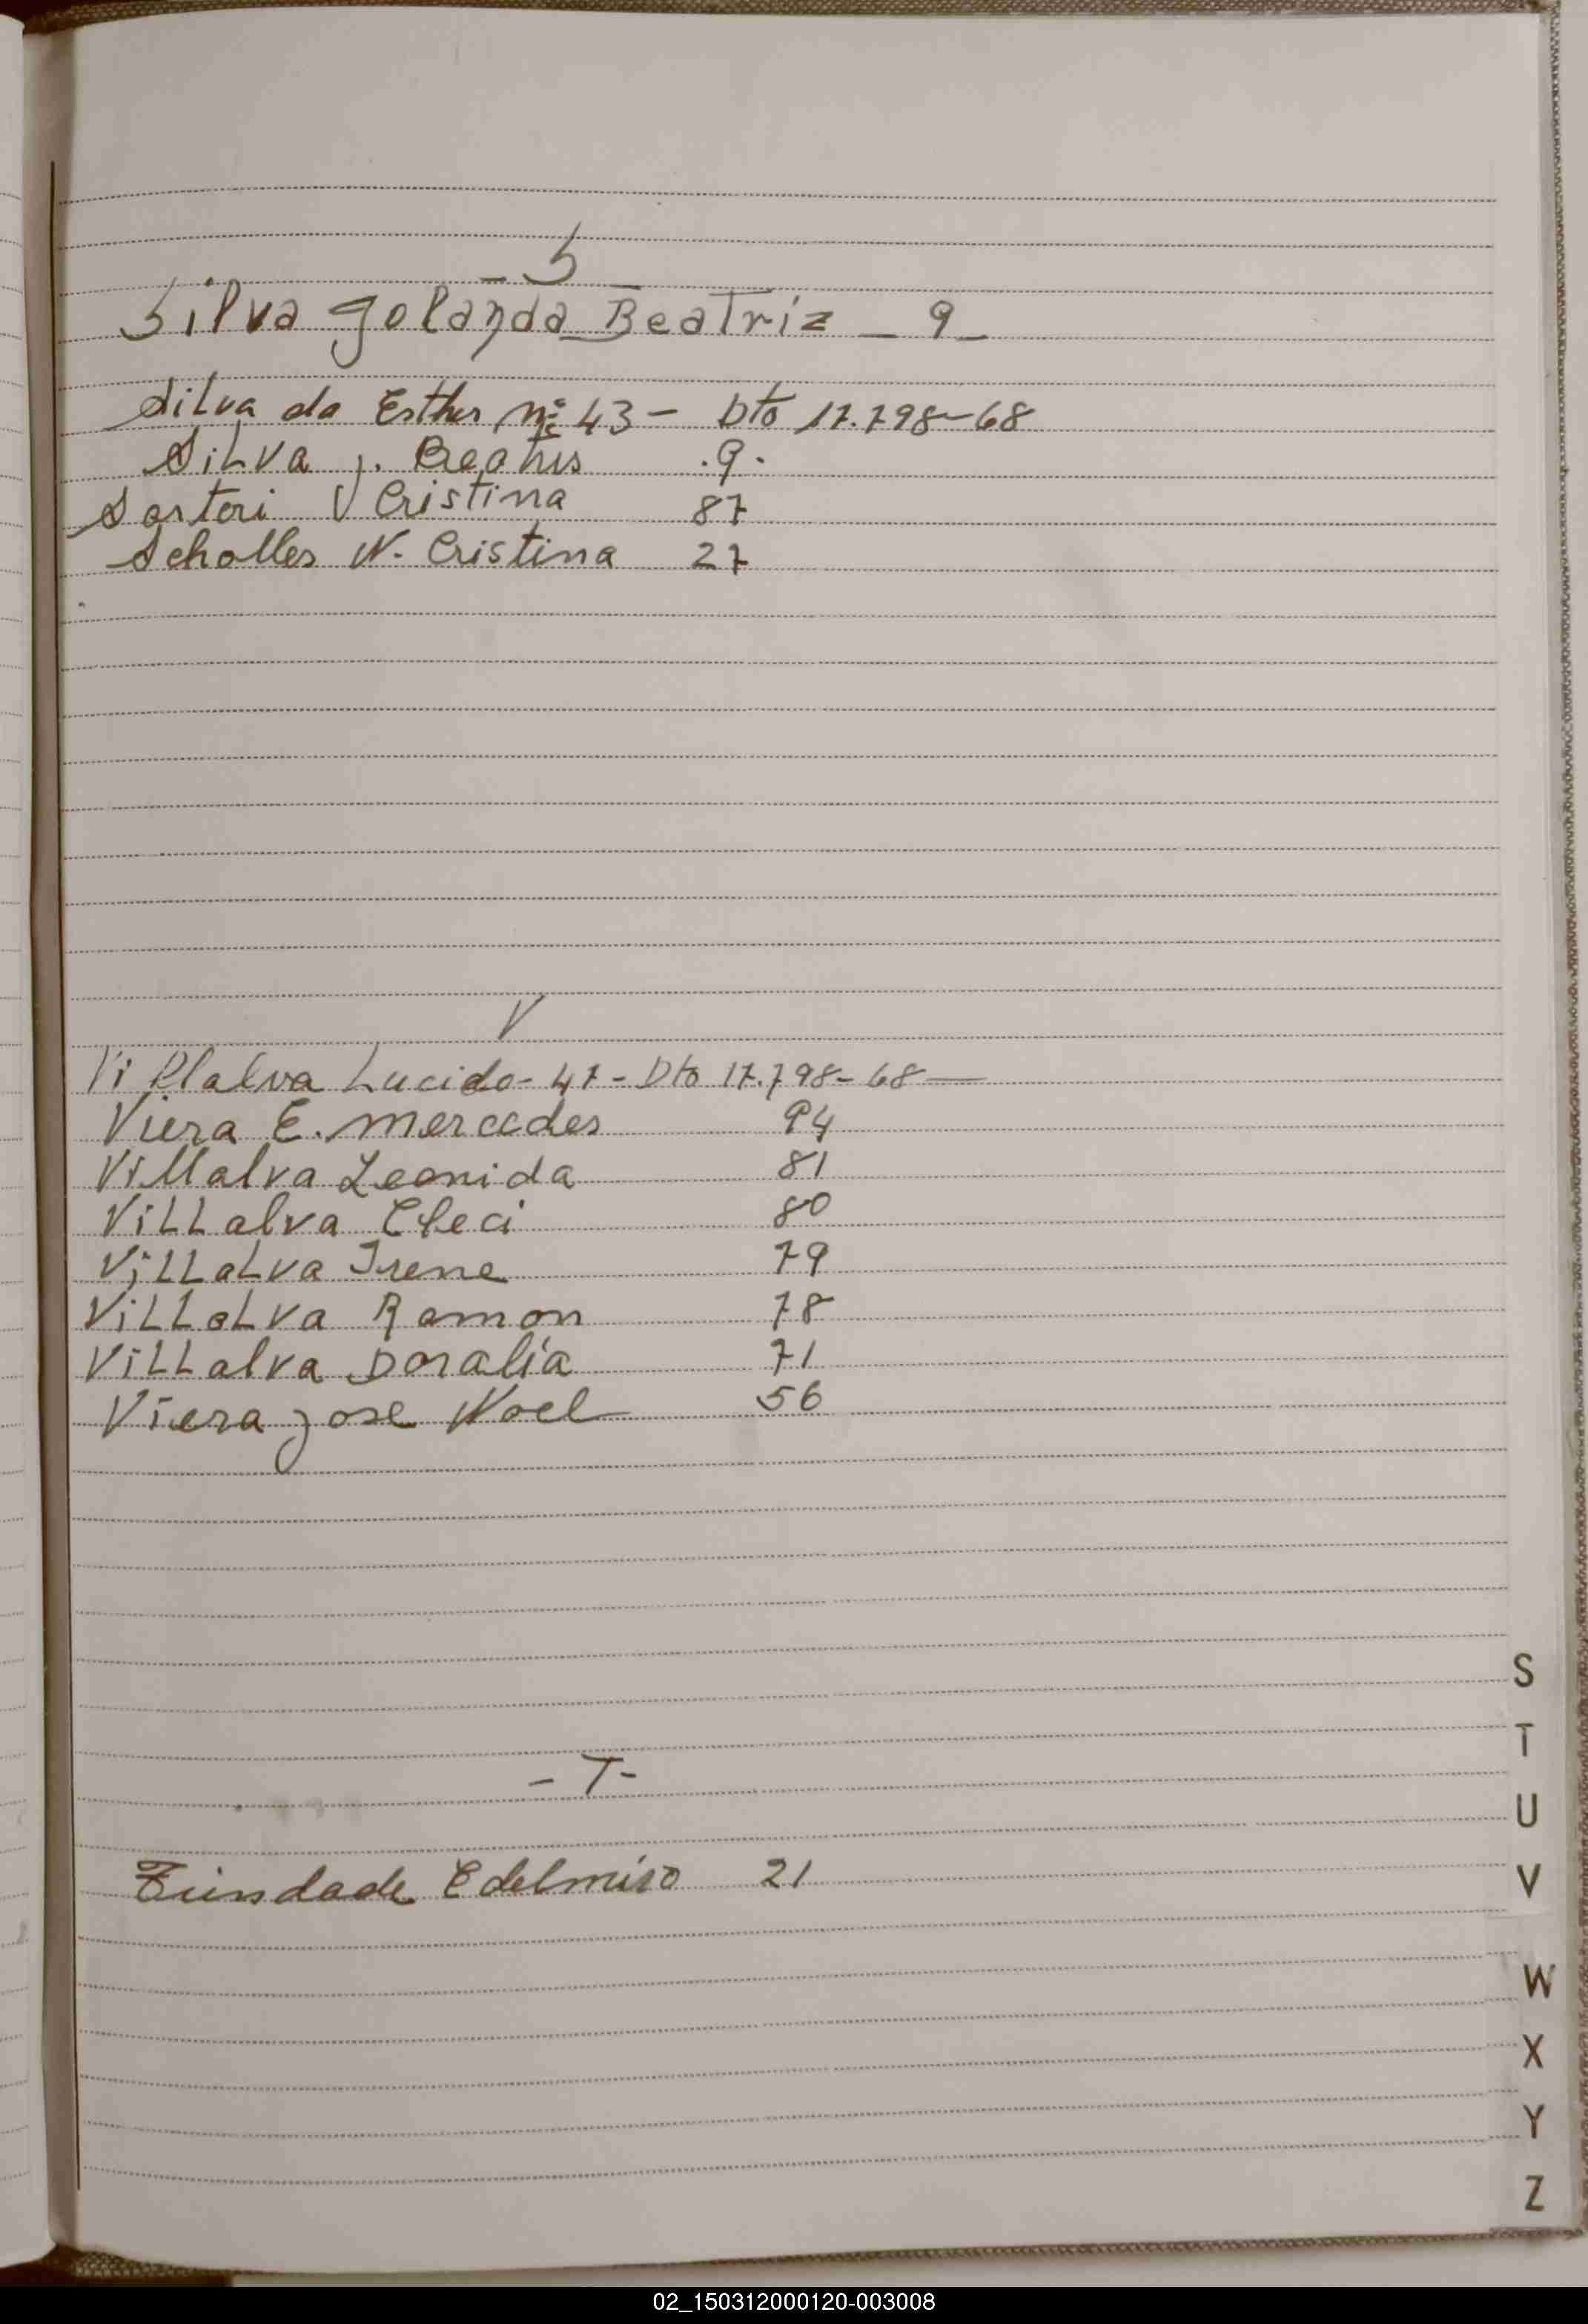 - S -
Silva Yolanda Beatriz - 9 -
Silva da Esther Nº 43 - Dto 17.798-68
Silva J. Beatris .9.
Sartori Cristina 87
Scholles N. Cristina 27
V
Villalva Lucido - 47 - Dto 17.798-68 -
Viera E. Mercedes 94
Villalva Leonida 81
Villalva Cleci 80
Villalva Irene 79
Villalva Ramon 78
Villalva Doralia 71
Viera Jose Noel 56
- T -
Trindade Edelmiro 21
S
T
U
V
W
X
Y
Z
02_150312000120-003008